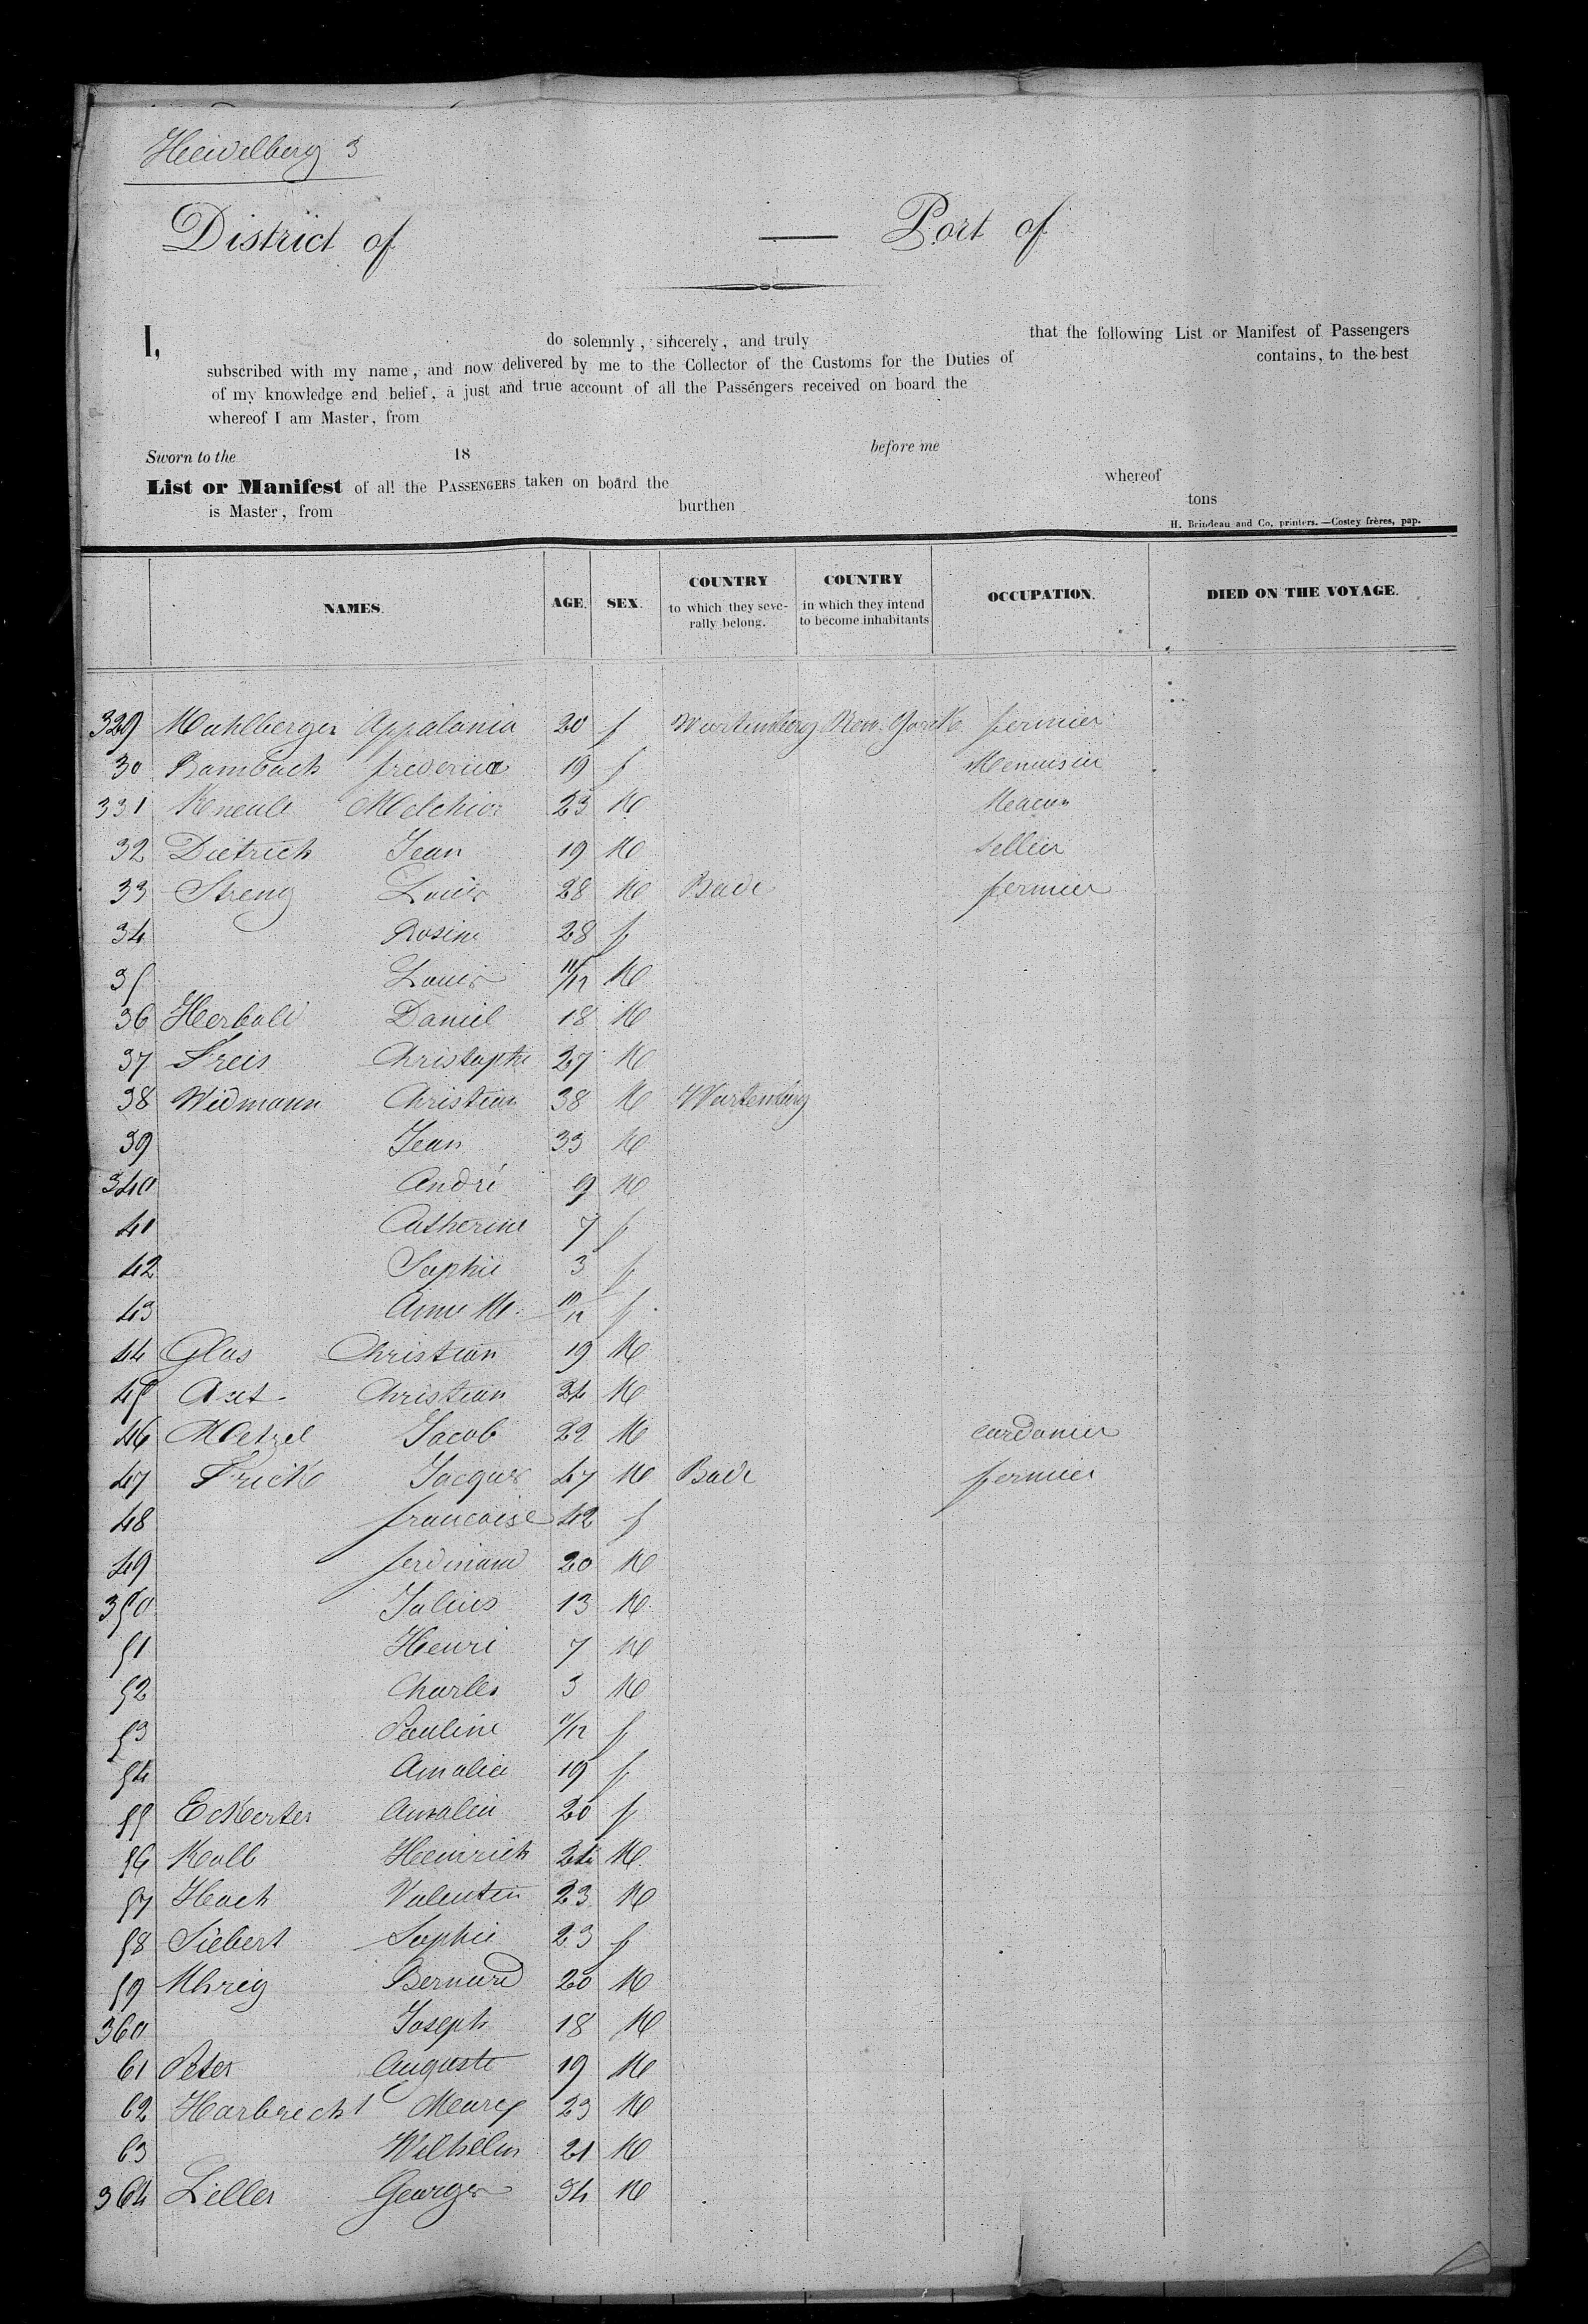 Heidelberg 3
District of — Port of
I, do solemnly, sincerely, and truly that the following List or Manifest of Passengers
subscribed with my name, and now delivered by me to the Collector of the Customs for the Duties of contains, to the best
of my knowledge and belief, a just and true account of all the Passengers received on board the
whereof I am Master, from
Sworn to the 18 before me
List or Manifest of all the PASSENGERS taken on board the whereof
is Master, from burthen tons
H. Brindeau and Co, printers. — Costey frères, pap.
NAMES. AGE. SEX. COUNTRY to which they seve- rally belong. COUNTRY in which they intend to become inhabitants OCCUPATION. DIED ON THE VOYAGE.
329 Mahlberger Appalonia 20 f Wurtemberg New-Yorck fermier
30 Bambach frederica 19 f Menuisier
331 Kneule Melchior 23 M Macon
32 Dietrich Jean 19 M sellier
33 Streng Louis 28 M Bade fermier
34 Rosine 28 f
35 Louis 11/12 M
36 Herbold Daniel 18 M
37 Freis Christophe 27 M
38 Widmann Christian 38 M Wurtemberg
39 Jean 33 M
340 André 9 M
41 Catherine 7 f
42 Sophie 3 f
43 Anne M. 10/12 f
44 Glas Christian 19 M
45 Axt Christian 24 M
46 Metzel Jacob 22 M cordonier
47 Frick Jacques 47 M Bade fermier
48 francoise 42 f
49 ferdinand 20 M
350 Julius 13 M
51 Henri 7 M
52 Charles 3 M
53 Pauline 11/12 f
54 Amalia 19 f
55 Eckerter Amalia 20 f
56 Kolb Heinrich 24 M
57 Hach Valentin 23 M
58 Siebert Sophie 23 f
59 Uhrig Bernard 20 M
360 Joseph 18 M
61 Peter Auguste 19 M
62 Harbrecht 23 M
63 Wilhelm 21 M
364 Liller Georges 34 M